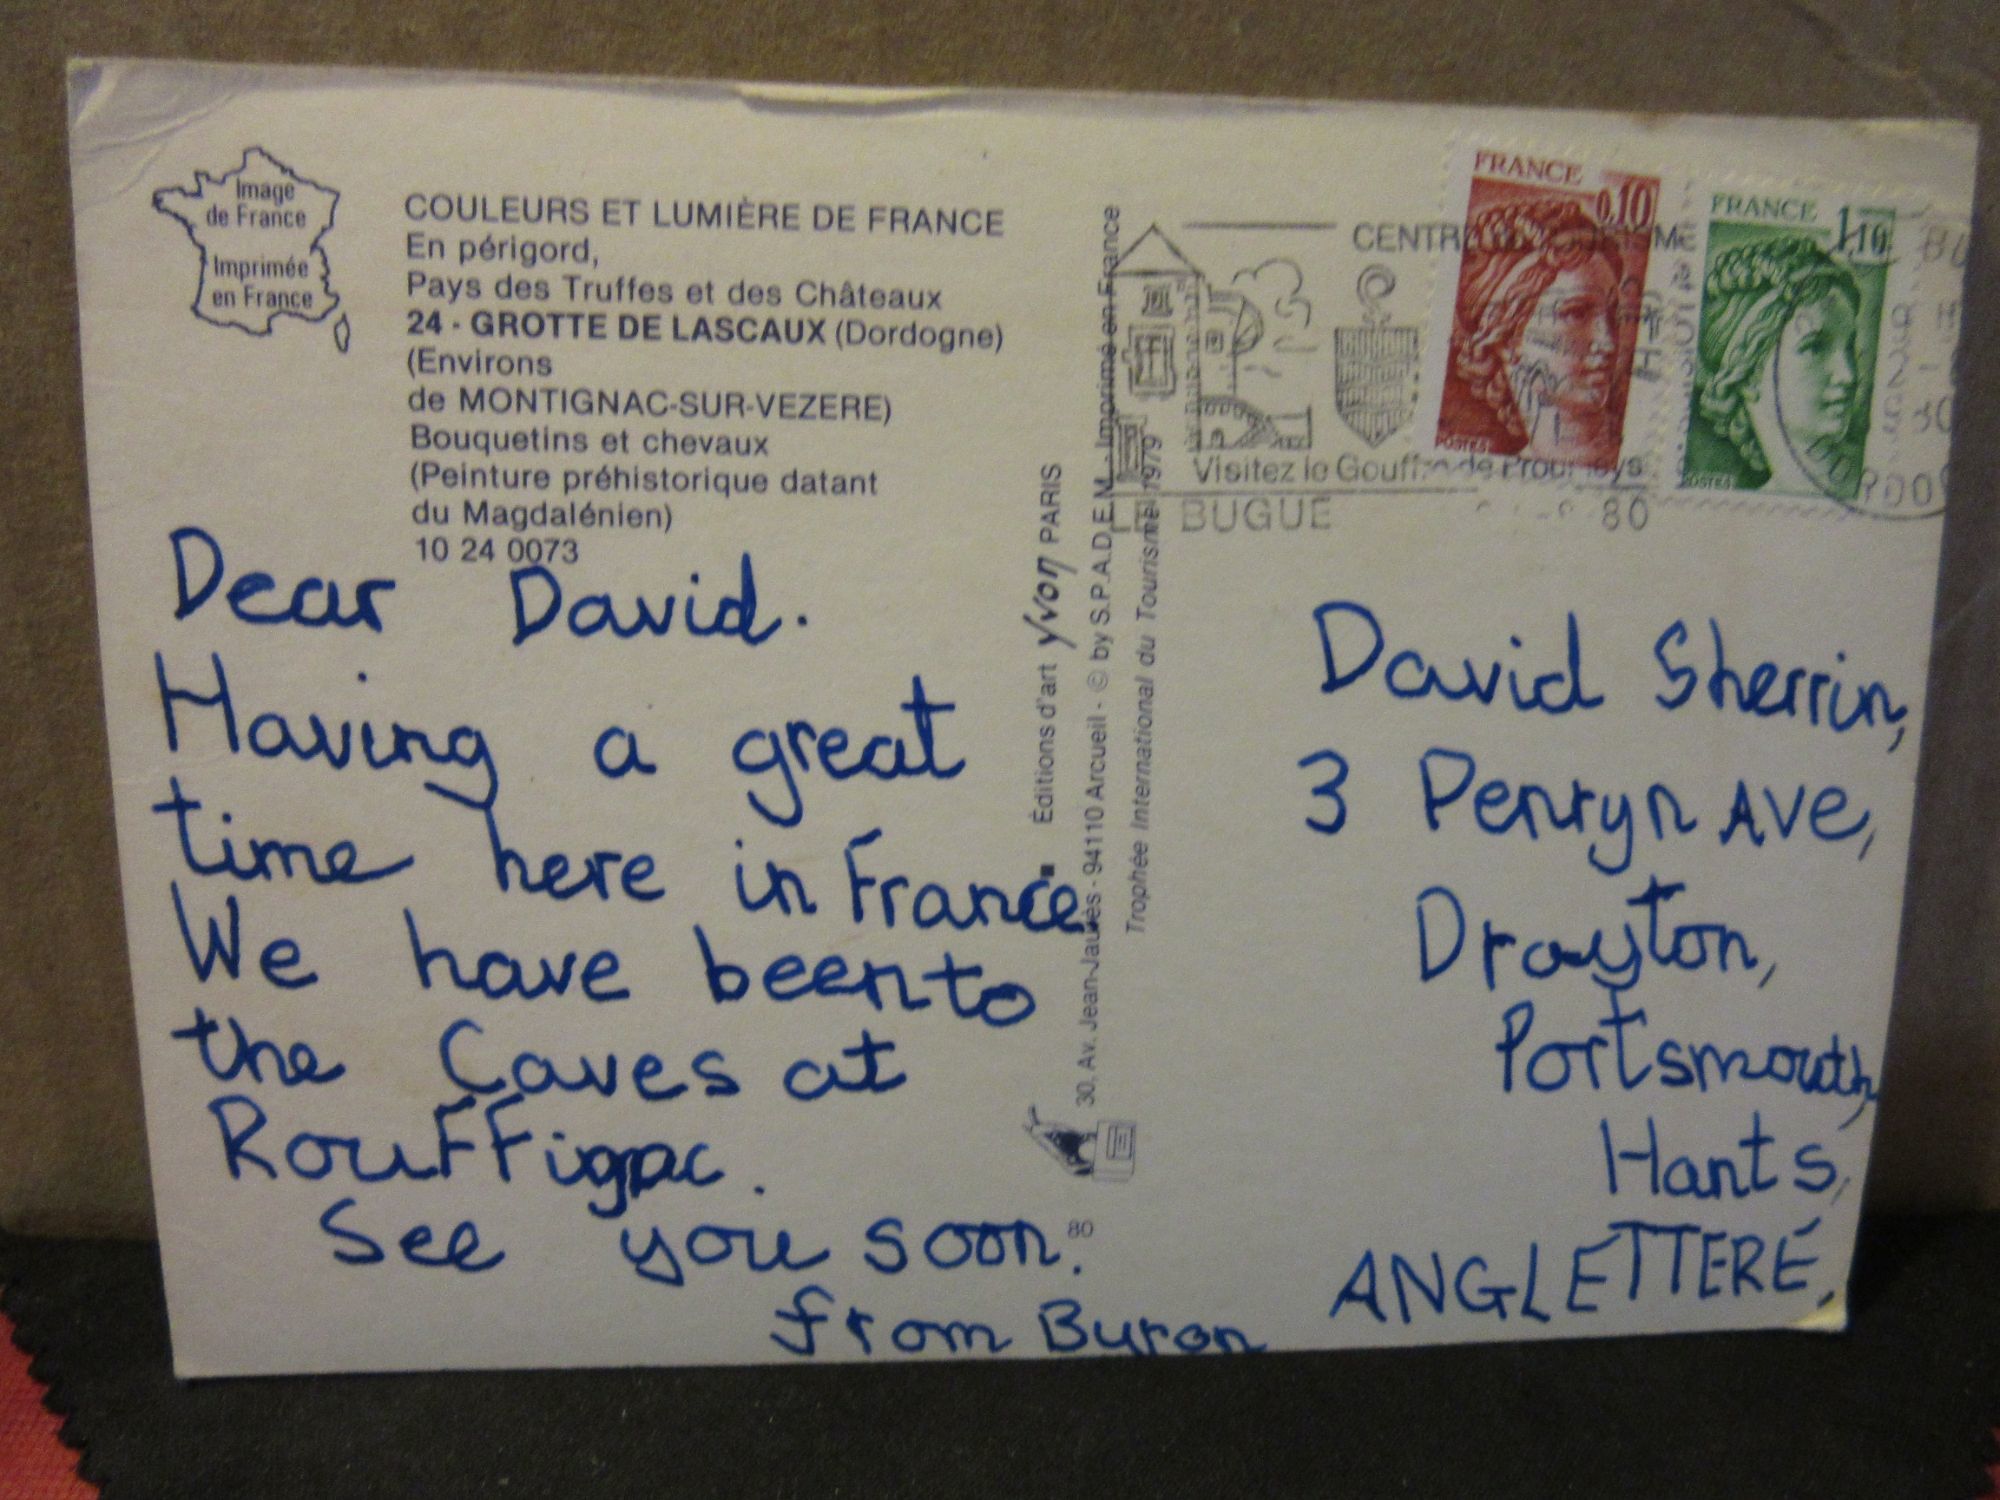 Image
de France
Imprimée
en France
COULEURS ET LUMIÈRE DE FRANCE
En périgord,
Pays des Truffes et des Châteaux
24 - GROTTE DE LASCAUX (Dordogne)
(Environs
de MONTIGNAC-SUR-VEZERE)
Bouquetins et chevaux
(Peinture préhistorique datant
du Magdalénien)
10 24 0073
Dear David.
Having a great
time here in France
We have been to
the Caves at
Rouffignac.
See you soon.
from Byron
Éditions d'art Yvon PARIS
30, Av. Jean-Jaurès - 94110 Arcueil - © by S.P.A.D.E.M. - Imprimé en France
Trophée International du Tourisme 1979
80
FRANCE
0,10
POSTES
FRANCE
1,10
POSTES
Visitez le Gouffre de
BUGUE
80
David Sherrin,
3 Penryn Ave,
Drayton,
Portsmouth,
Hants,
ANGLETTERE,